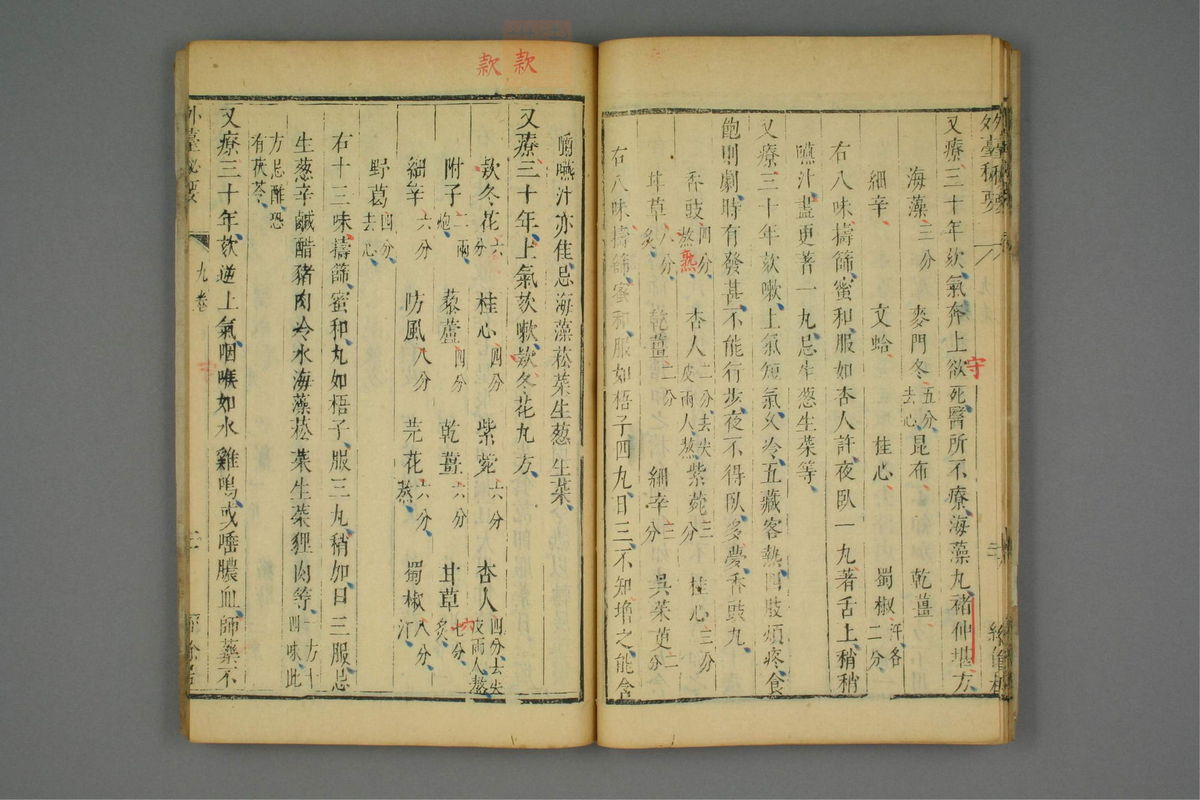 外臺秘要
又療三十年欬氣奔上欲死醫所不療海藻丸褚仲堪方
海藻三分 麥門冬五分去心 昆布 乾薑
細辛 文蛤 桂心 蜀椒汗各二分
右八味擣篩蜜和服如杏人許夜臥一丸著舌上稍稍
嚥汁盡更著一丸忌生葱生菜等
又療三十年欬嗽上氣短氣久冷五藏客熱四肢煩疼食
飽則劇時有發甚不能行步夜不得臥多夢香豉丸
香豉四分熬 杏人二分去尖皮兩人熬 紫菀三分 桂心三分
熟
甘草八分炙 乾薑二分 細辛三分 吳茱萸二分
右八味擣篩蜜和服如梧子四丸日三不知增之能食
守
款 款
嚼嚥汁亦佳忌海藻菘菜生葱生菜
又療三十年上氣欬嗽欵冬花丸方
欵冬花六分 桂心四分 紫菀六分 杏人四分去尖皮兩人熬
附子二兩炮 藜蘆四分 乾薑六分 甘草七分炙
細辛六分 防風八分 芫花六分蒸 蜀椒八分汗
野葛四分去心
右十三味擣篩蜜和丸如梧子服三丸稍加日三服忌
生葱辛鹹醋豬肉冷水海藻菘菜生菜狸肉等一方十四味此
方忌酢恐有茯苓
又療三十年欬逆上氣咽喉如水雞鳴或唾膿血師藥不
外臺秘要 九卷